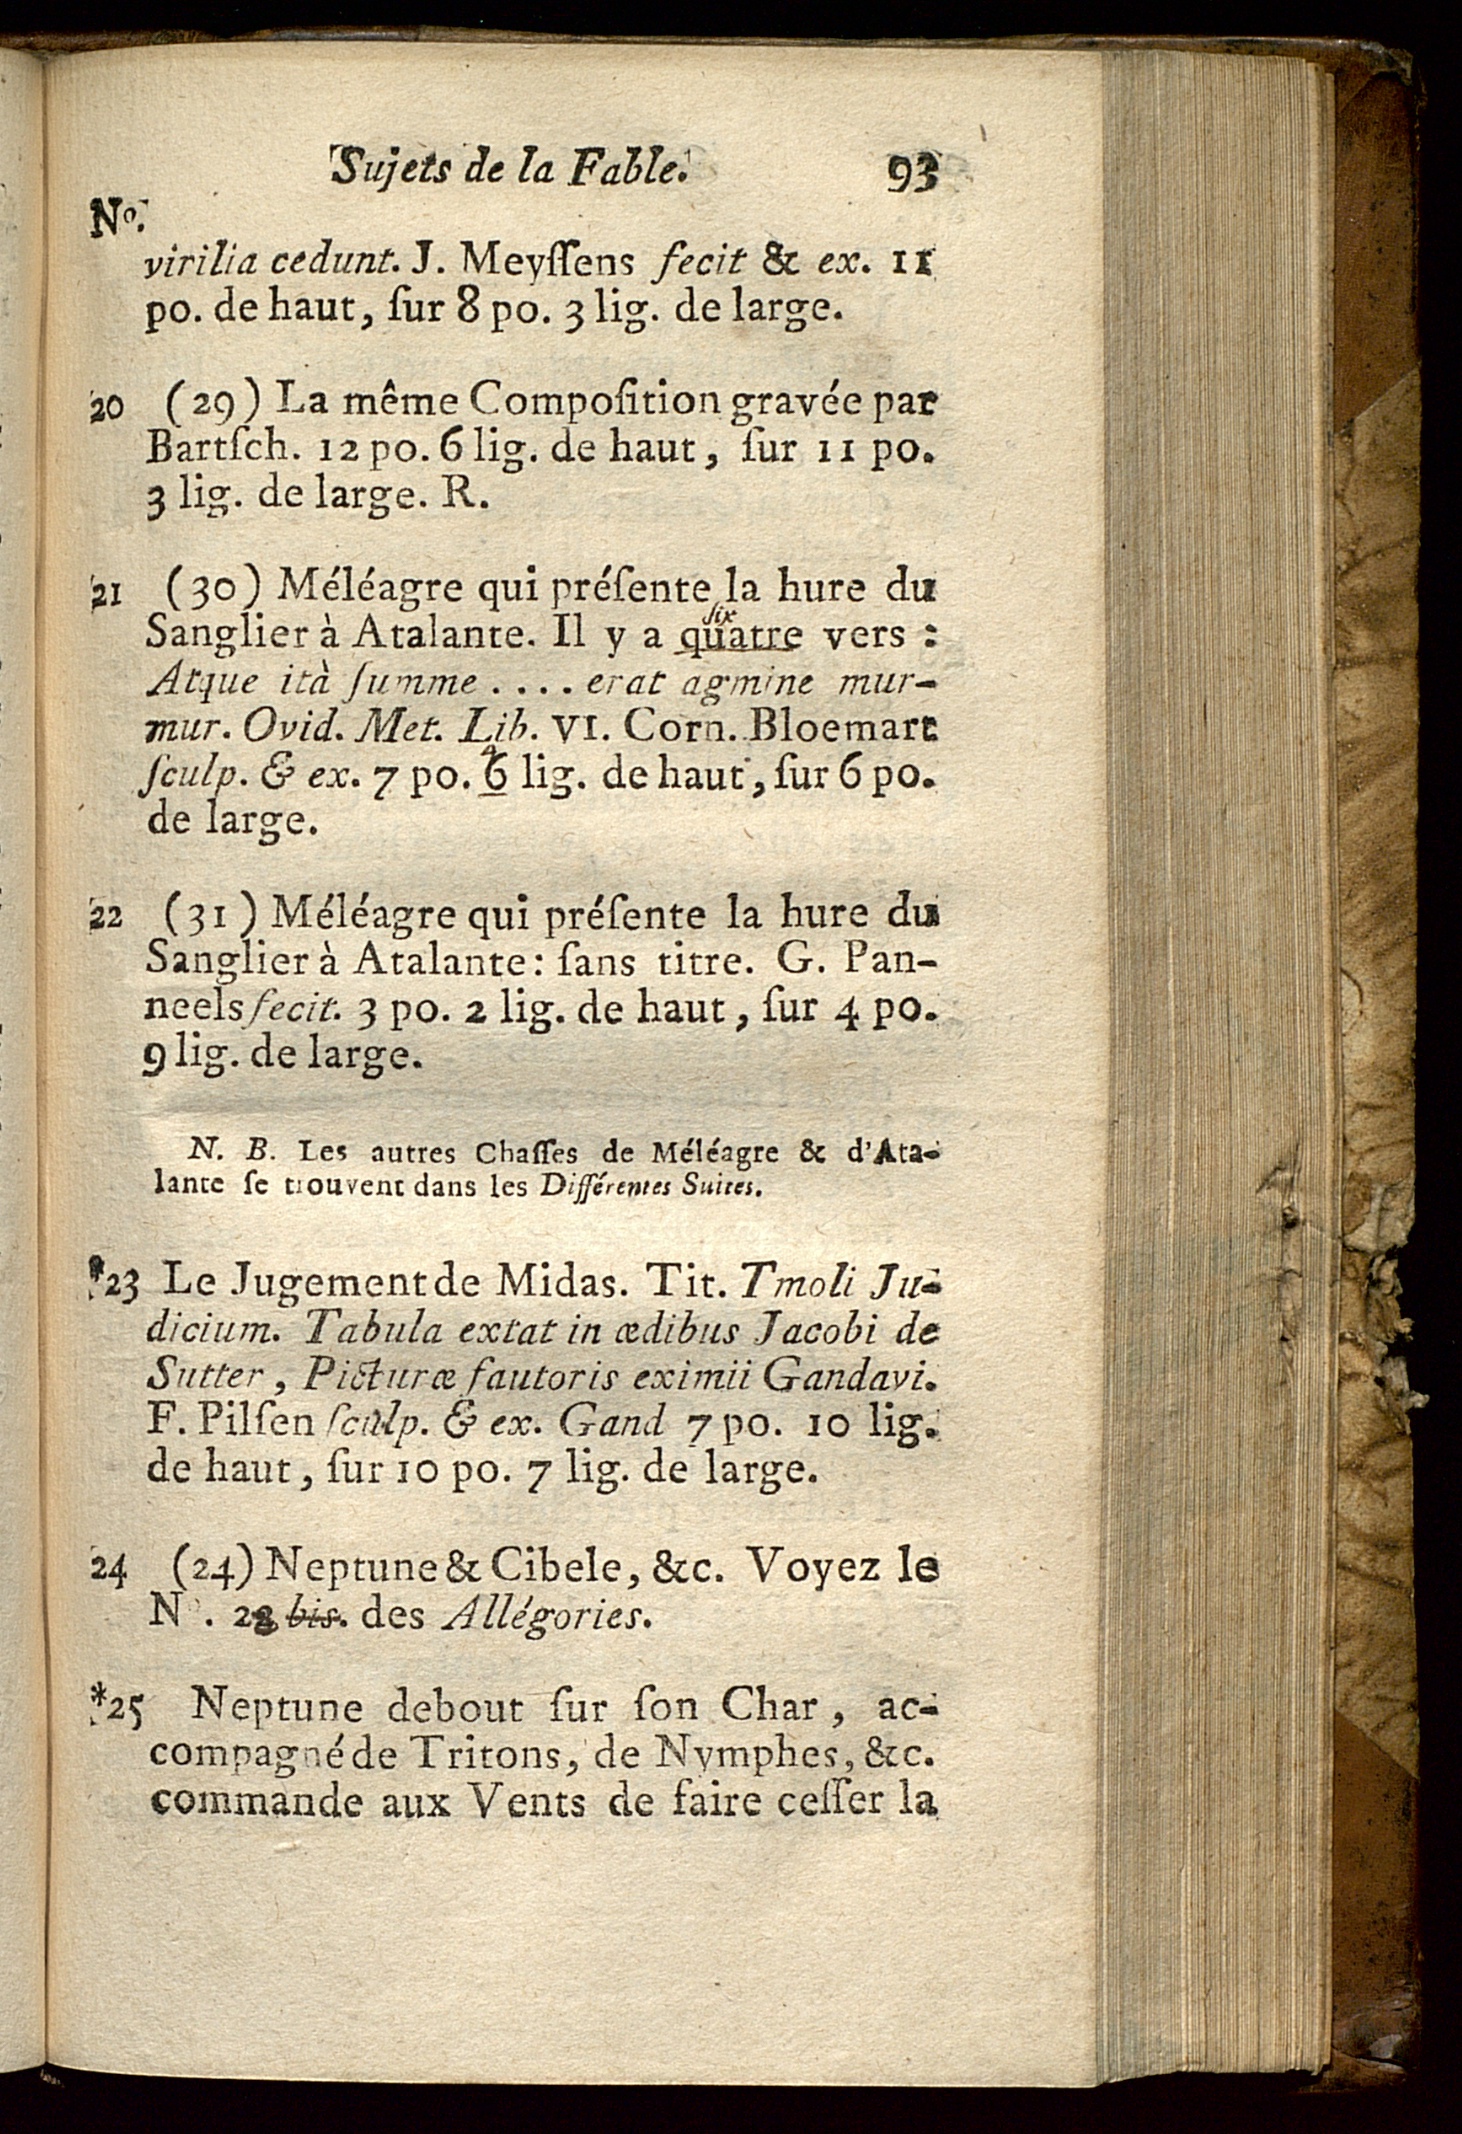 Sujets de la Fable. 93
No.
virilia cedunt. J. Meyſſens fecit & ex. 11
po. de haut, ſur 8 po. 3 lig. de large.
20 (29) La même Compoſition gravée par
Bartſch. 12 po. 6 lig. de haut, ſur 11 po.
3 lig. de large. R.
21 (30) Méléagre qui préſente la hure du
six
Sanglier à Atalante. Il y a quatre vers :
Atque ità ſumme .... erat agmine mur-
mur. Ovid. Met. Lib. VI. Corn. Bloemart
4
ſculp. & ex. 7 po. 6 lig. de haut, ſur 6 po.
de large.
22 (31) Méléagre qui préſente la hure du
Sanglier à Atalante: ſans titre. G. Pan-
neels fecit. 3 po. 2 lig. de haut, ſur 4 po.
9 lig. de large.
N. B. Les autres Chaſſes de Méléagre & d'Ata-
lante ſe trouvent dans les Différentes Suites.
*23 Le Jugement de Midas. Tit. Tmoli Ju-
dicium. Tabula extat in ædibus Jacobi de
Sutter, Picturæ fautoris eximii Gandavi.
F. Pilſen ſculp. & ex. Gand 7 po. 10 lig.
de haut, ſur 10 po. 7 lig. de large.
24 (24) Neptune & Cibele, &c. Voyez le
No. 28 bis. des Allégories.
*25 Neptune debout ſur ſon Char, ac-
compagné de Tritons, de Nymphes, &c.
commande aux Vents de faire ceſſer la